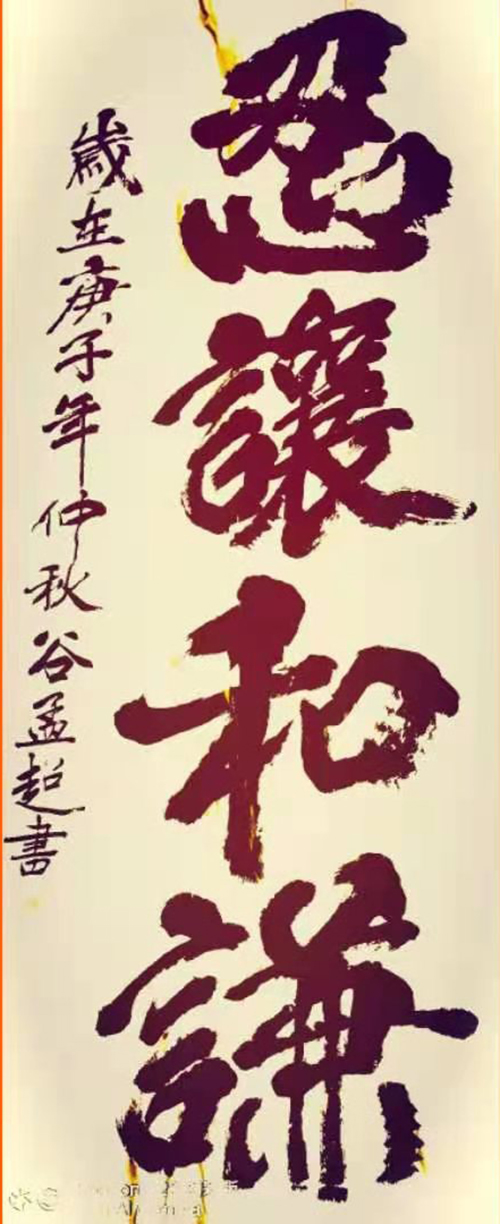 忍讓和謙
歲在庚子年仲秋谷孟超書